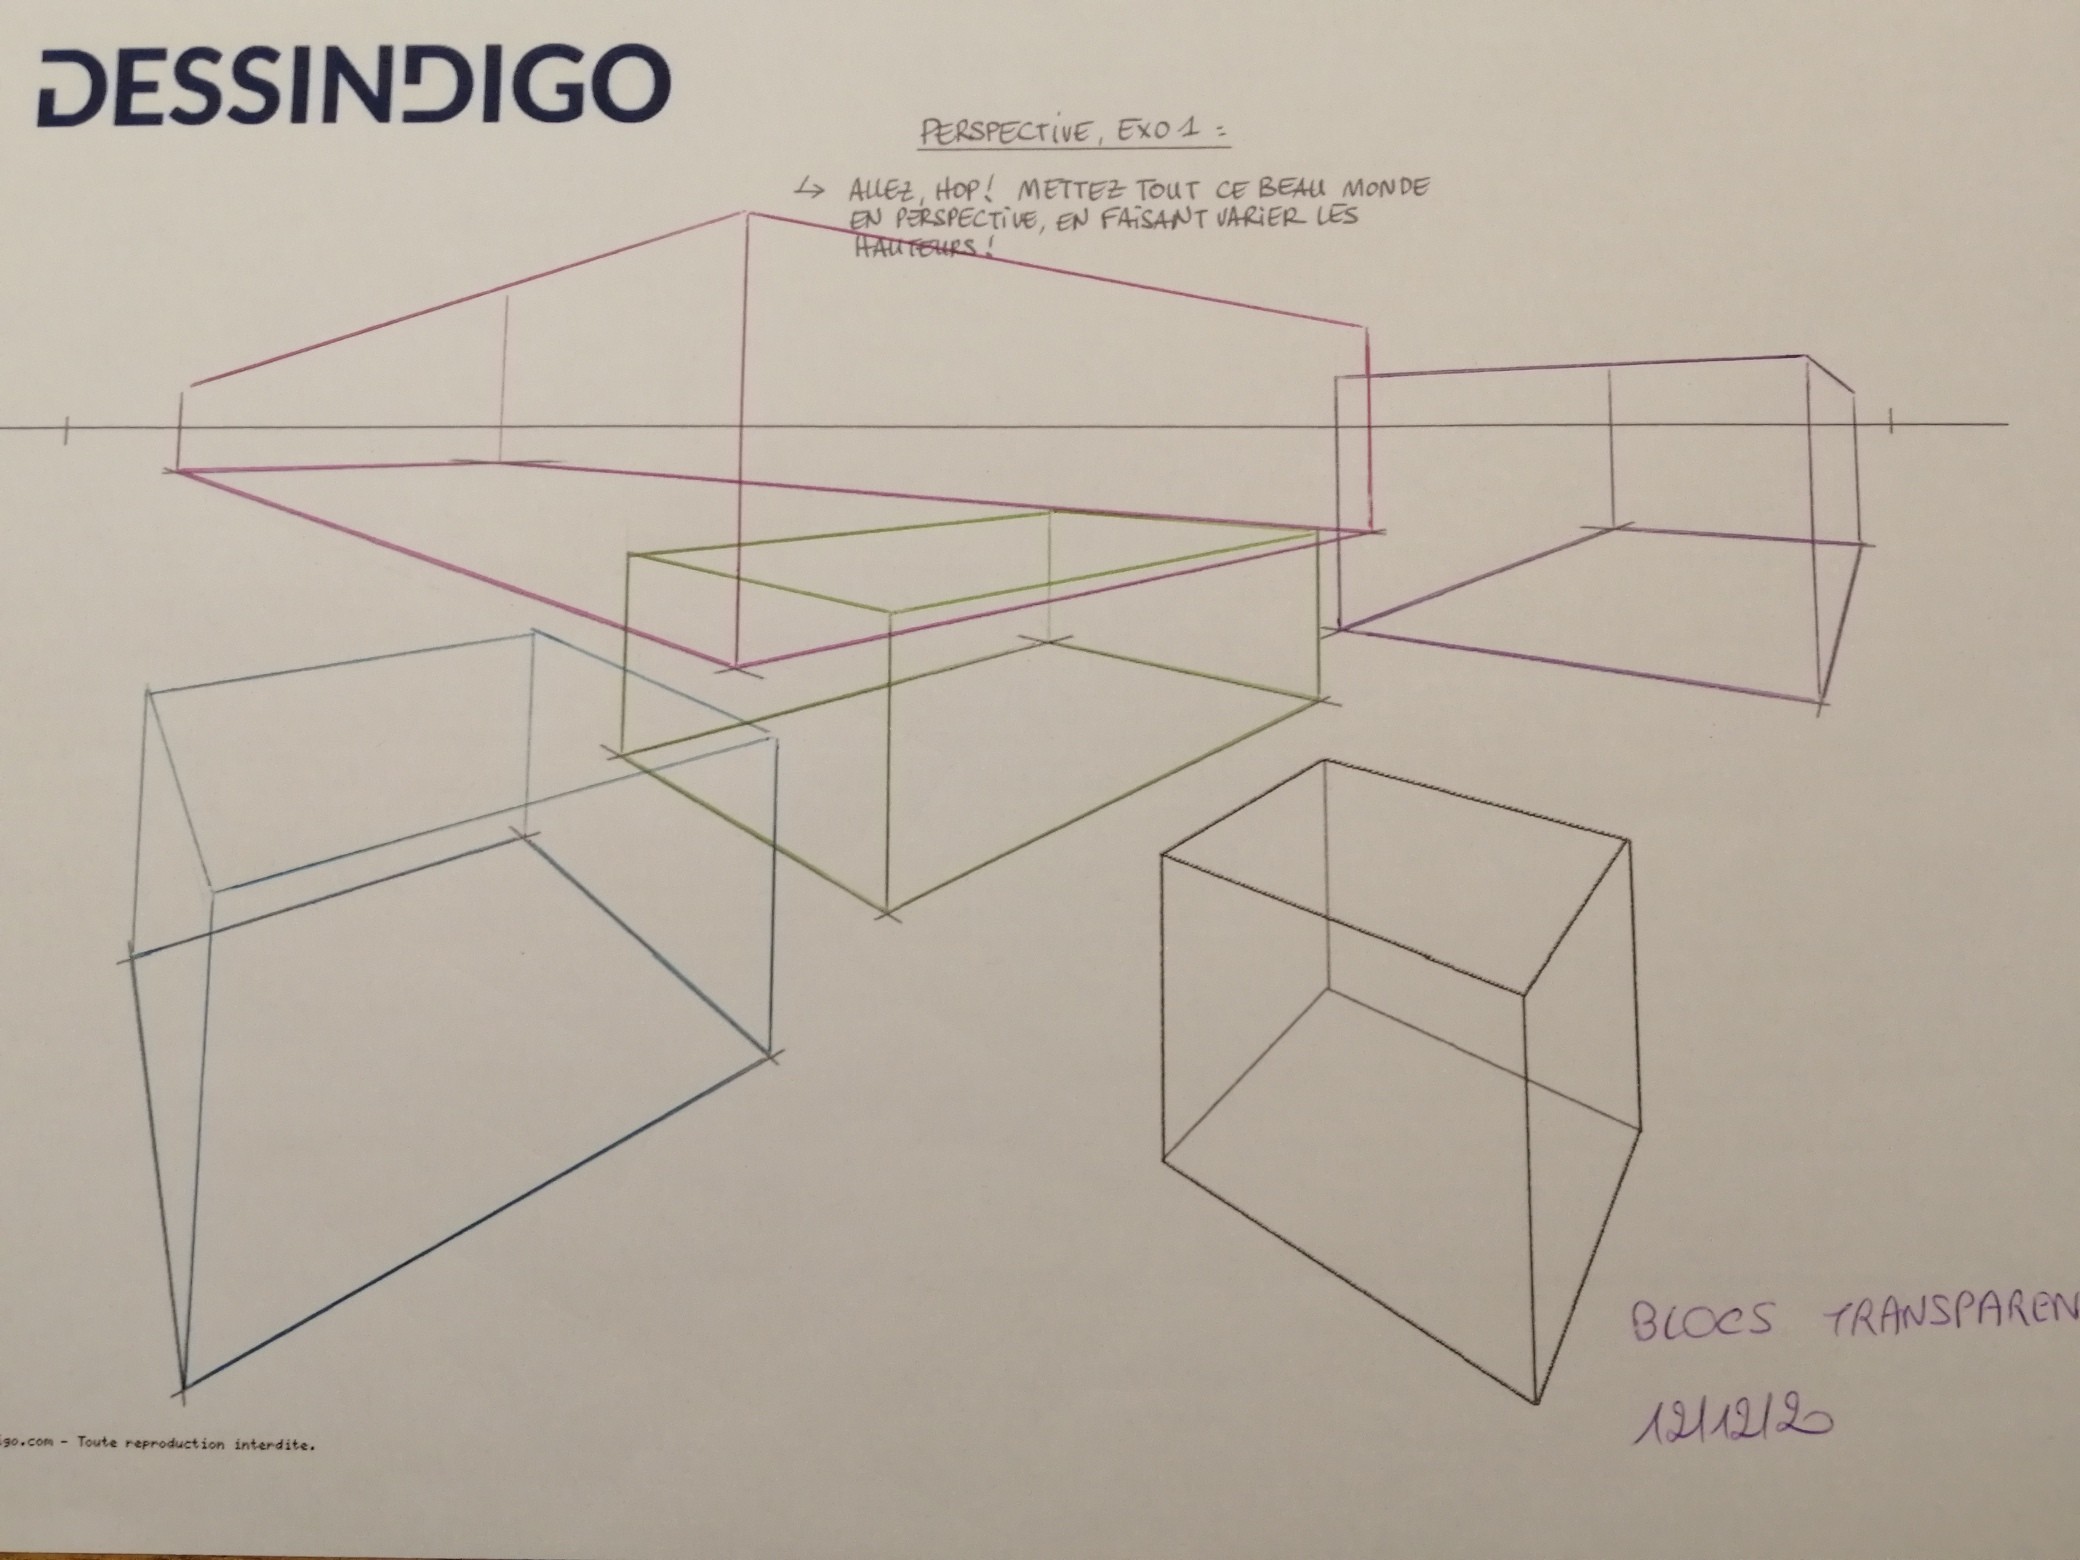 DESSINDIGO
PERSPECTIVE, EXO 1 :
↳ ALLEZ, HOP! METTEZ TOUT CE BEAU MONDE
EN PERSPECTIVE, EN FAISANT VARIER LES
HAUTEURS!
BLOCS TRANSPAREN
12/12/20
igo.com - Toute reproduction interdite.